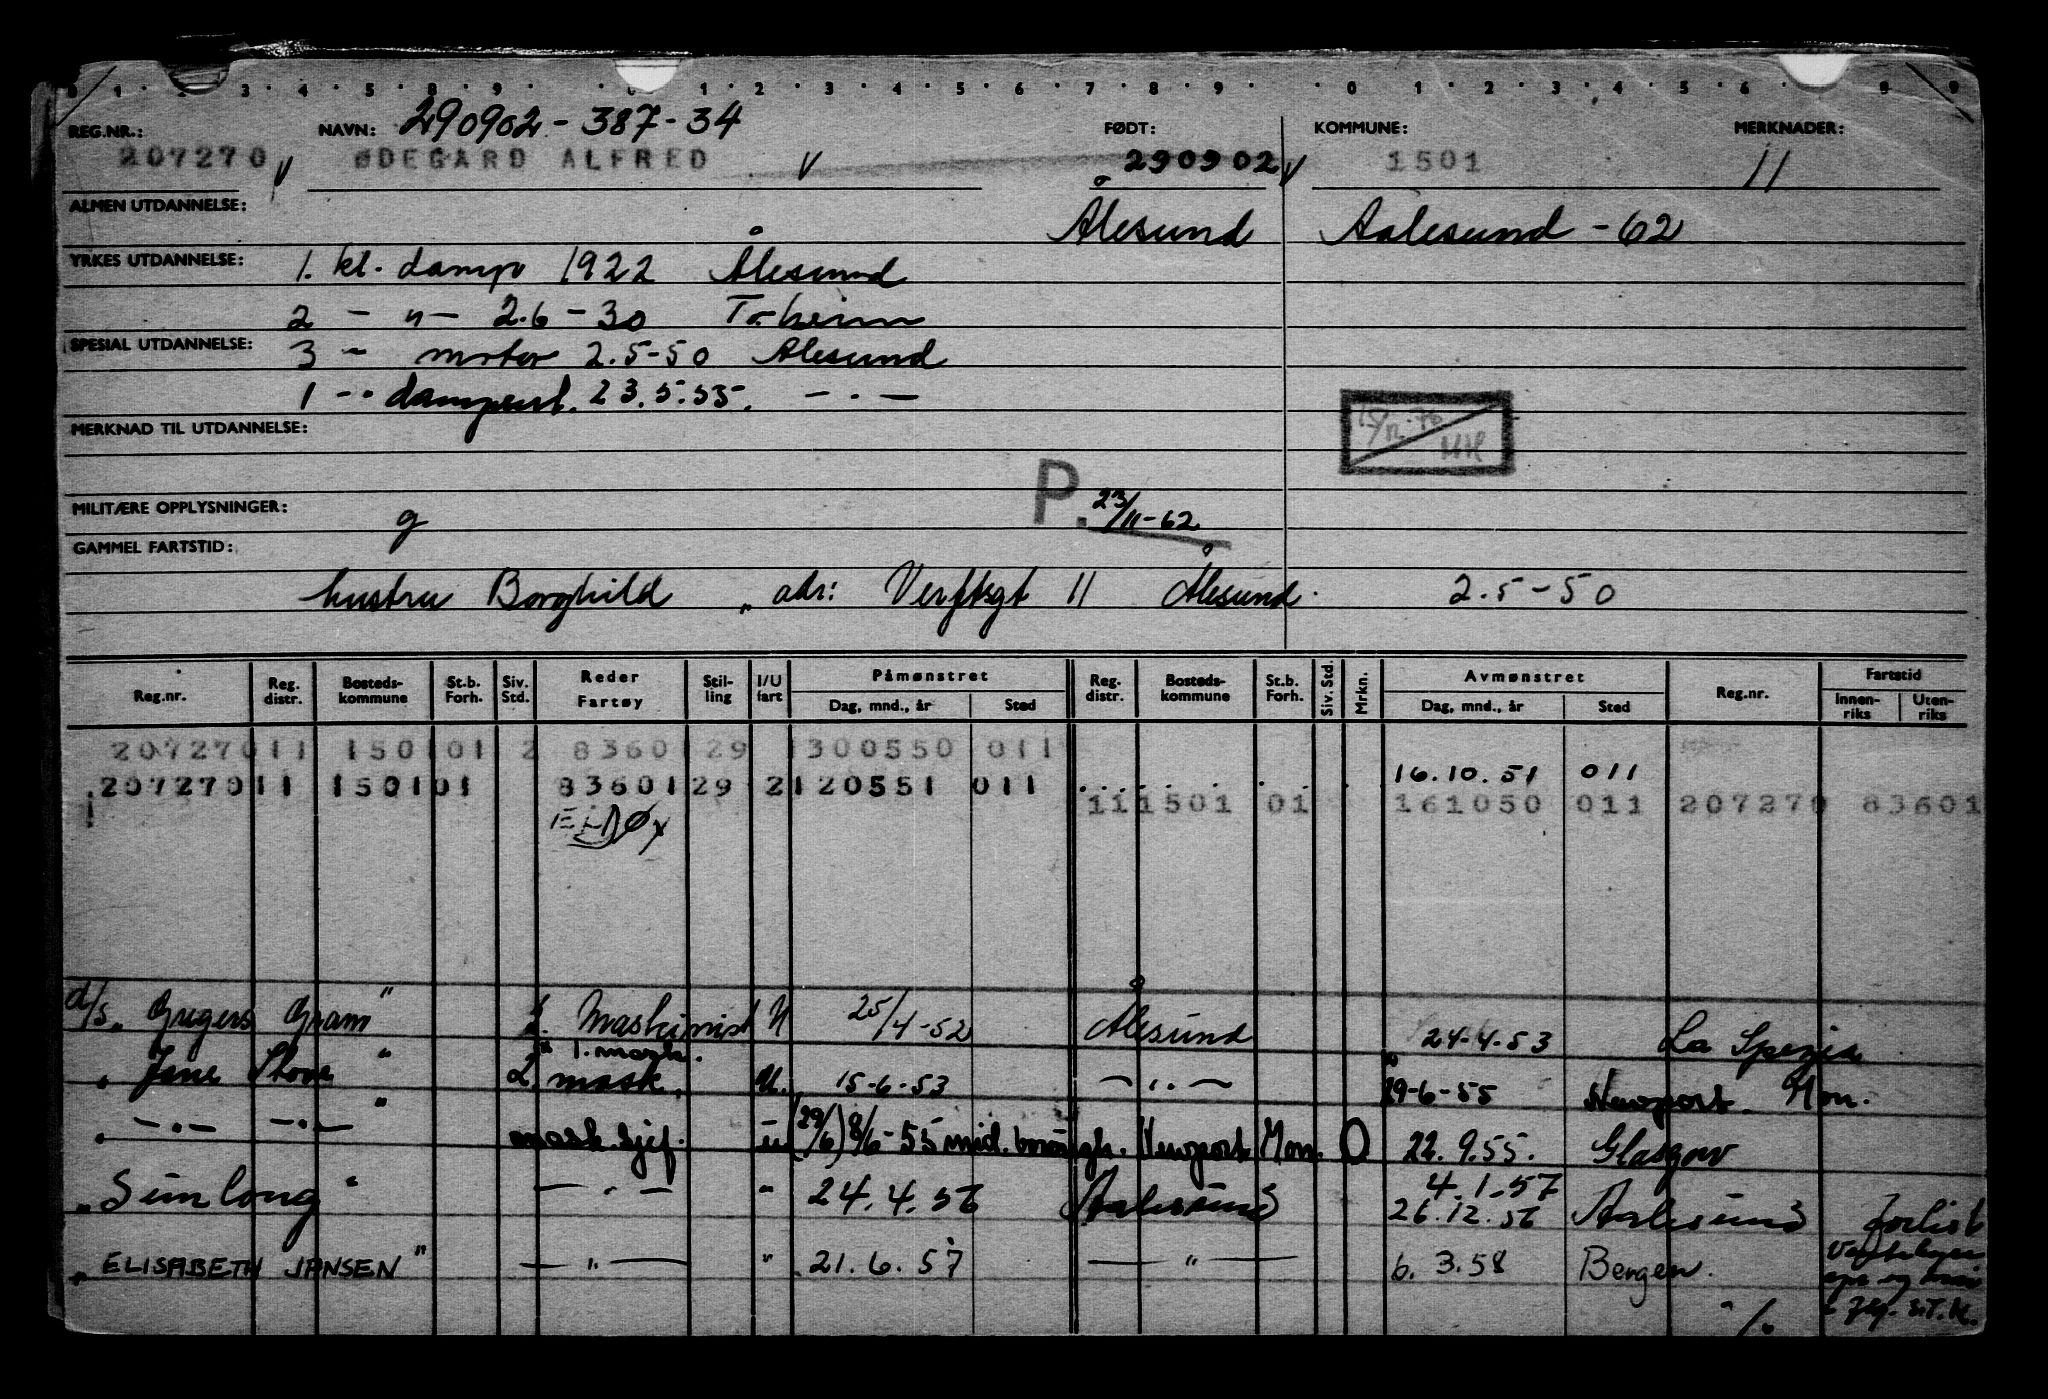 0 1 2 3 4 5 6 7 8 9 0 1 2 3 4 5 6 7 8 9 0 1 2 3 4 5 6 8 9
REG.NR.: NAVN: 290902 - 387 - 34 FØDT: KOMMUNE: MERKNADER:
207270 V ØDEGARD ALFRED V 290902 V 1501 11
ALMEN UTDANNELSE: Ålesund Aalesund - 62
YRKES UTDANNELSE: 1. kl. damp 1922 Ålesund
2 - " - 2.6 - 30 Tr.heim
SPESIAL UTDANNELSE: 3 - motor 2.5-50 Ålesund
1 - " dampsert. 23.5.55. - " -
MERKNAD TIL UTDANNELSE: 15/12-70 MH
MILITÆRE OPPLYSNINGER: g P. 23/11-62
GAMMEL FARTSTID:
hustru Borghild " adr: Verftsgt 11 Ålesund. 2.5-50
Reg.nr. Reg. distr. Bosteds-kommune St.b. Forh. Siv. Std. Reder Fartøy Stil-ling I/U fart Påmønstret Dag, mnd., år Sted Reg. distr. Bosteds-kommune St.b. Forh. Siv. Std. Mrkn. Avmønstret Dag, mnd., år Sted Reg.nr. Fartstid Innen-riks Uten-riks
207270 11 1501 01 2 8360 29 1300550 011
207270 11 1501 01 83601 29 2 120551 011 16.10.51 011
11 1501 01 161050 011 207270 83601
ELDØY
d/s "Gregers Gram" 2. Maskinist U 25/4-52 Ålesund 24-4-53 La Spezia
1. mask.
" Jane Stove " 2. mask. U. 15-6-53 - " - 29-6-55 Newport Mon.
" - " - - " - " mask.sjef. u (29/6) 8/6-55 mid.brough. Newport Mon. O 22.9.55. Glasgow
4.1.57
"Sunlong" - " - " 24.4.56 Aalesund 26.12.56 Aalesund forlist
"ELISABETH JANSEN" - " - " 21.6.57 - " - 6.3.58 Bergen.